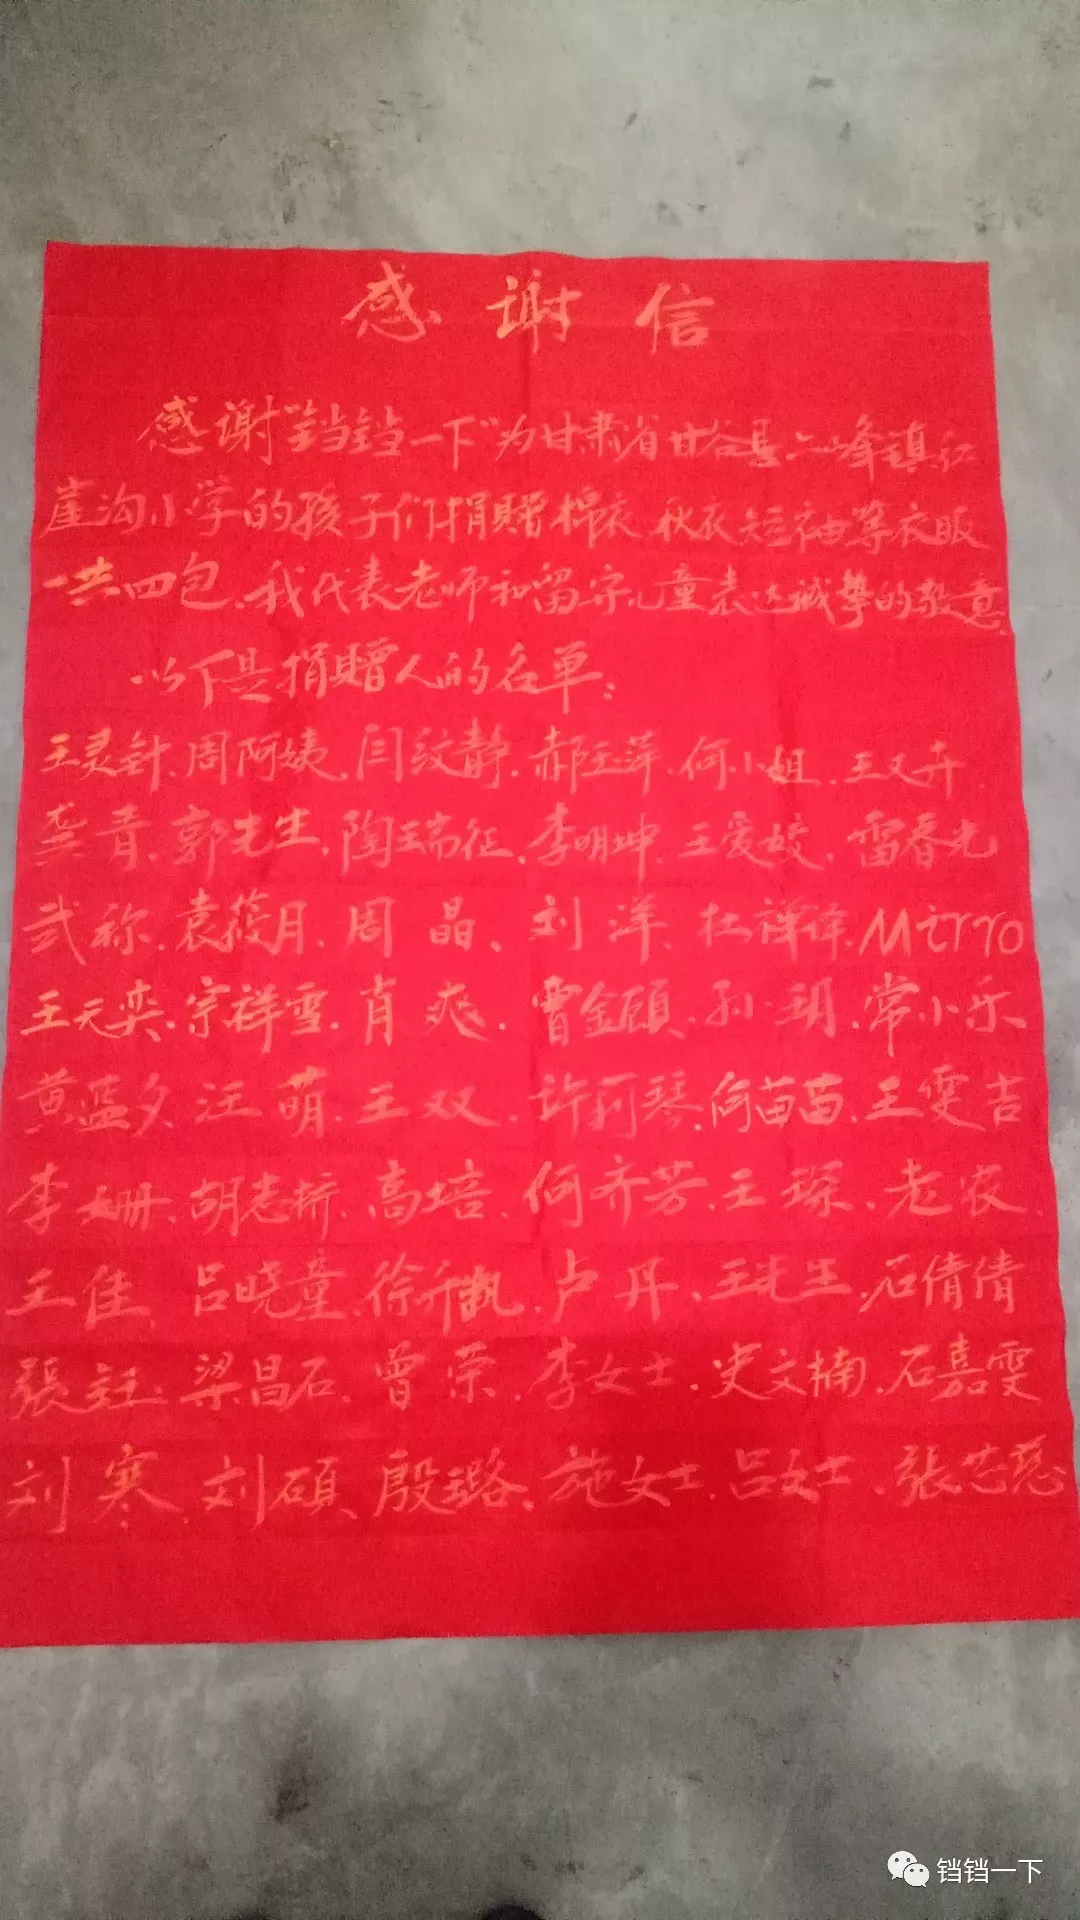 感谢信
感谢"铛铛一下"为甘肃省甘谷县六峰镇红
崖沟小学的孩子们捐赠棉衣 秋衣 短袖等衣服
一共四包、我代表老师和留守儿童表达诚挚的敬意、
以下是捐赠人的名单:
王灵针、周阿姨、闫纹静、郝玉萍、何小姐、王双升
龚青、郭先生、陶瑞征、李明坤、王爱姣、雷春光
武称、袁筱月、周晶、刘洋、杜祥译、Mirro
王元奕、宗祥雪、肖爽、曹金硕、孙玥、常小乐
黄蓝夕、汪萌、王双、许莉琴、何苗苗、王雯吉
李姗、胡志娇、高培、何齐芳、王琛、老农、
王佳 吕晓童、徐升凯、卢丹、王先生、石倩倩
張、梁昌石、曾荣、李女士、史文楠、石嘉雯
刘寒、刘碩、殷璐、施女士、吕女士、張艺慈
铛铛一下